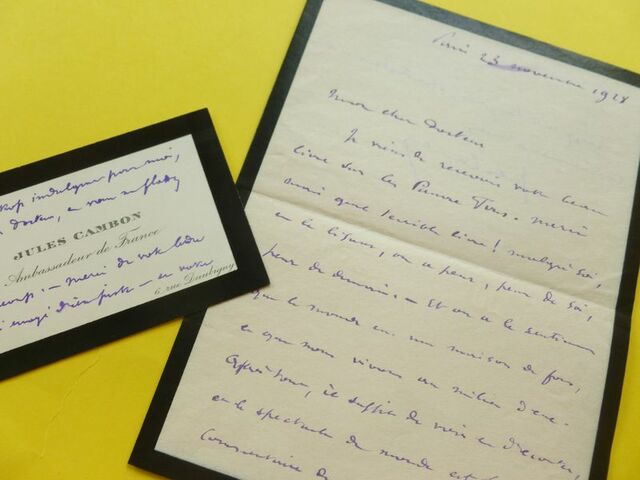 indulgence pour moi,
docteur, en vous
JULES CAMBON
Ambassadeur de France
merci de votre
6, rue Daubigny
Paris 23 novembre 1928
Mon cher docteur
Je viens de recevoir votre beau
livre sur les Pauvres Types. merci
mais quel terrible livre ! malgré soi,
en le lisant, on a peur, peur de soi,
peur de demain. - Et on a le sentiment
que le monde est une maison de fous,
et que nous vivons au milieu d'eux.
Après tout, il suffit de voir et d'écouter,
et le spectacle du monde est
Commentaire de